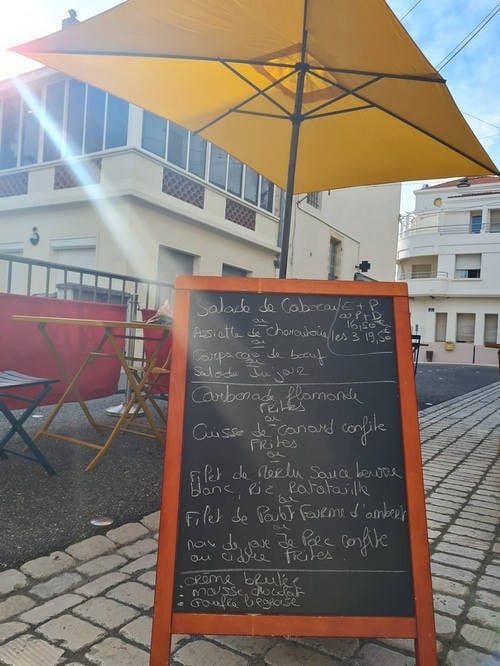 Salade de Cabecou E + P
ou ou P + D
Assiette de Charcuterie 16,50
ou les 3 19,50
Carpaccio de bœuf
Salade
Carbonade flamande
FRITES
ou
Cuisse de Canard confite
FRITES
ou
Filet de Merlu Sauce beurre
blanc, Riz Ratatouille
ou
Filet de Poulet Fourme d'ambert
ou
noix de joue de Porc confite
au cidre FRITES
crème brulée
- mousse chocolat
- Gaufre liégeoise